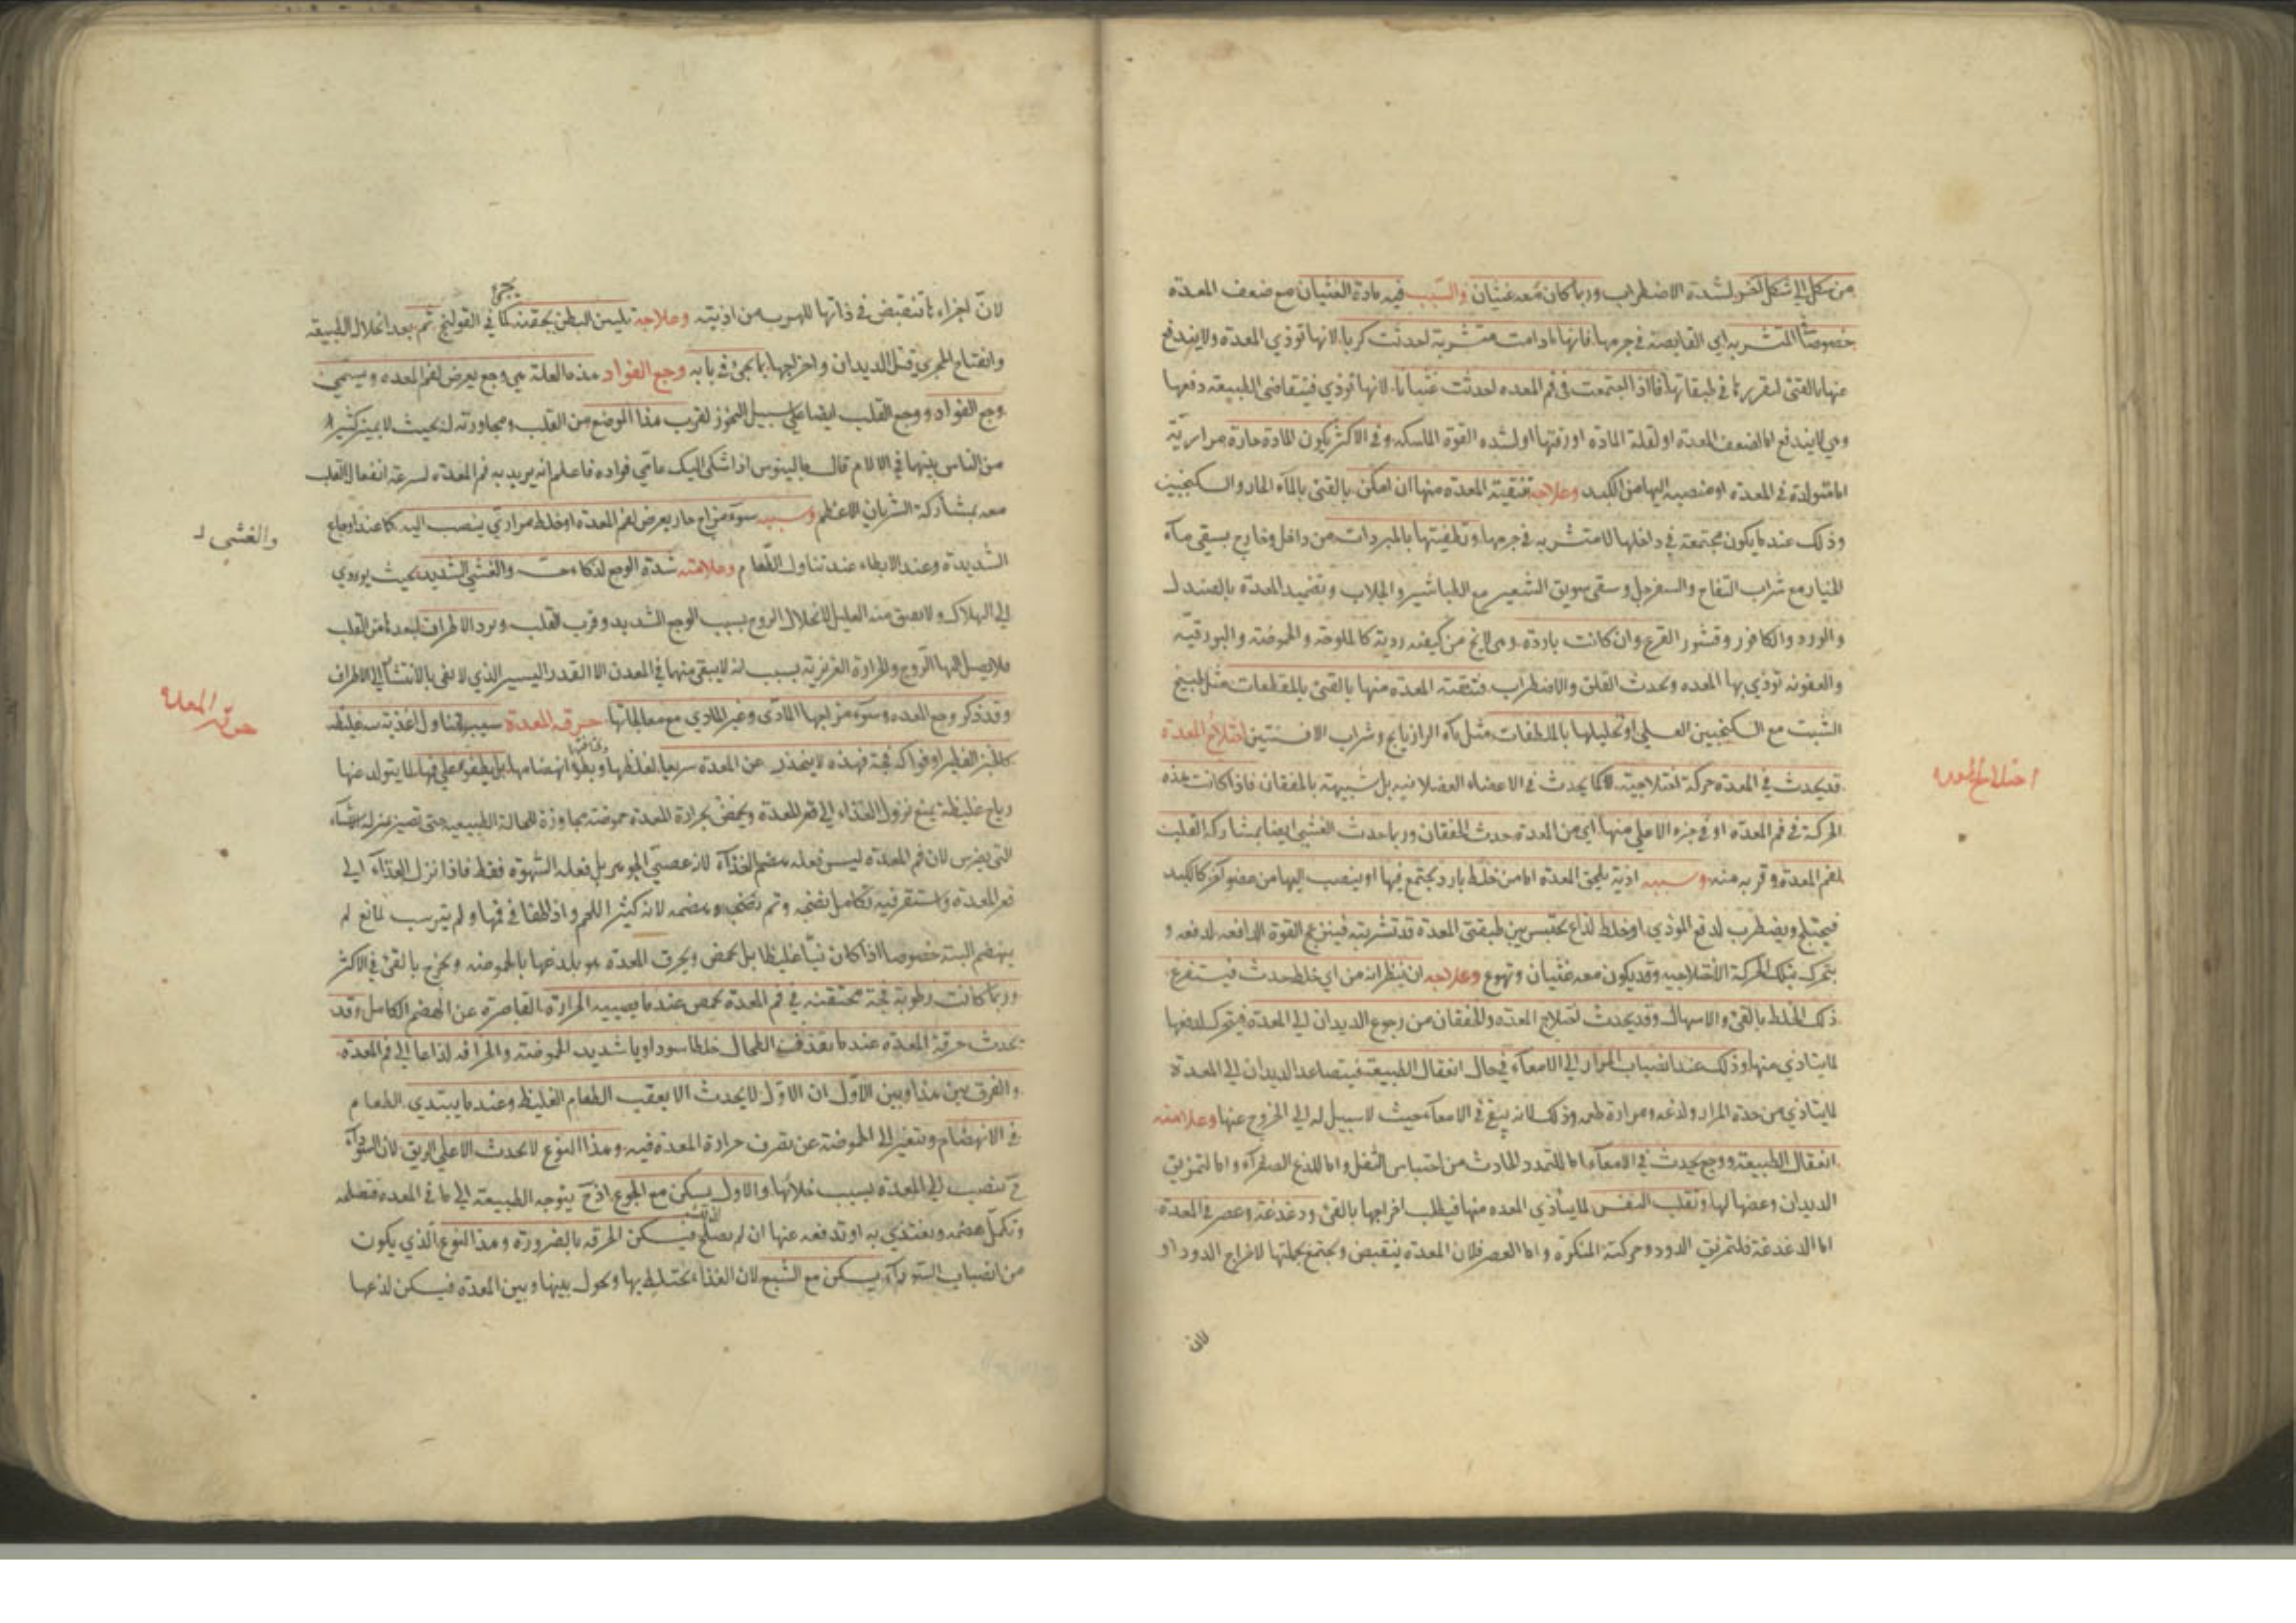 من شكل الى شكل آخر لشدة الاضطراب وربما كان معه غثيان والسبب فيه مادة الغثيان مع ضعف المعدة
خصوصا المتشربة اي الغايصة في جرمها فانها مادامت متشربة احدثت كربا لانها توذي المعدة ولا يندفع
عنها بالقئ لتقررها في طبقاتها فاذا اجتمعت في فم المعده احدثت غثيانا لانها توذي فيتقاضى الطبيعة دفعها
وهي لا يندفع اما لضعف المعدة او لقلة المادة او رقتها او لشده القوة الماسكة وفي الاكثر يكون المادة حارة مرارية
اما متولدة في المعدة او منصبة اليها من الكبد وعلاجه تنقية المعده منها ان امكن بالقئ بالماء الحار والسكنجبين
وذلك عند ما يكون مجتمعة في داخلها لا متشربة في جرمها وتطفيتها بالمبردات من داخل وخارج بسقي ماء
الخيار مع شراب التفاح والسفرجل وسقي سويق الشعير مع الطباشير والجلاب وتضميد المعدة بالصندل
والورد والكافور وقشور القرع وان كانت باردة وهي لا يخ من كيفية ردية كالملوحة والحموضة والبورقية
والعفونة توذي بها المعده وتحدث القلق والاضطراب فتنقية المعده منها بالقئ بالمقطعات مثل طبيخ
الشبت مع السكنجبين العسلي او تحليلها بالملطفات مثل ماء الرازيانج وشراب الافسنتين اختلاج المعدة
قد يحدث في المعدة حركة اختلاجية لا كما يحدث في الاعضاء العضلانيه بل شبيهة بالخفقان فاذا كانت هذه
الحركة في فم المعدة او في جزه الاعلى منها اي من المعدة حدث الخفقان وربما حدث الغشي ايضا بمشاركة القلب
لفم المعدة وقربه منه وسببه اذية يلحق المعده اما من خلط بارد يجتمع فيها او ينصب اليها من عضو آخر كالكبد
فيختلج ويضطرب لدفع الموذي او خلط لذاع يحتبس بين طبقتي المعدة قد تشربته فينزعج القوة الدافعة لدفعه و
يتحرك بتلك الحركة الاختلاجيه وقد يكون معه غثيان وتهوع وعلاجه ان ينظر انه من اي خلط حدث فيستفرغ
ذلك الخلط بالقئ والاسهال وقد يحدث اختلاج المعده والخفقان من رجوع الديدان الى المعدة فيتحرك لدفعها
لما يتاذي منها وذلك عند انصباب المرار الى الامعاء في حال اعتقال الطبيعة فيتصاعد الديدان الى المعدة
لما يتاذي من حدة المرار ولذعه ومرارة طعمه وذلك لانه يبقى في الامعاء حيث لا سبيل له الى الخروج عنها وعلامته
اعتقال الطبيعة ووجع يحدث في الامعاء اما للتمدد الحادث من احتباس الثفل واما للذع الصفراء واما لتمزيق
الديدان وعضها لها وتقلب النفس لما يتاذي المعده منها فيطلب اخراجها بالقئ ودغدغة وعصر في المعدة
اما الدغدغة فلتمزيق الدود وحركته المنكرة واما العصر فلان المعدة ينقبض ويجتمع بجملتها لاخراج الدود او
لان
اختلاج المعده
لان اجزاءها تنقبض في ذاتها للهرب من اذيته وعلاجه تليين البطن بحقنه كما يجئ في القولنج ثم بعد انحلال الطبيعة
وانفتاح المجرى قتل الديدان واخراجها بما يجئ في بابه وجع الفواد هذه العلة هي وجع يعرض لفم المعده ويسمى
وجع الفواد ووجع القلب ايضا على سبيل التجوز لقرب هذا الموضع من القلب ومجاورته له بحيث لا يميز كثير
من الناس بينهما في الالام قال جالينوس اذا شكى اليك عامي فواده فاعلم انه يريد به فم المعدة لسرعة انفعال القلب
معه بمشاركة الشريان الاعظم وسببه سوء مزاج حار يعرض لفم المعدة او خلط مراري ينصب اليه كما عند اوجاع
الشديدة وعند الابطاء عند تناول الطعام وعلامته شدة الوجع لذكاء حسه والغشي الشديد بحيث يودي
الى الهلاك ولا يفيق منه العليل لانحلال الروح بسبب الوجع الشديد وقرب القلب وبرد الاطراف لبعدها من القلب
فلا يصل اليها الروح والحرارة الغريزية بسبب انه لا يبقى منها في المعدن الا القدر اليسير الذي لا يفي بالانتشار الى الاطراف
وقد ذكر وجع المعده وسوء مزاجها المادي وغير المادي مع معالجاتها حرقة المعدة سببه تناول اغذية غليظة
كالخبز الفطير او فواكه فجة فهذه لا ينحدر عن المعدة سريعا لغلظها وبطؤ انهضامها بل يطفو على فمها لما يتولد عنها
رياح غليظة يمنع نزول الغذاء الى قعر المعدة ويحمض بحرارة المعدة حموضة مجاوزة للحالة الطبيعية حتى تصير بمنزلة الاشياء
التي يضرس لان فم المعدة ليس فعله هضم الغذاء لانه عصبي الجوهر بل فعله الشهوة فقط فاذا نزل الغذاء الى
قعر المعدة واستقر فيه تكامل نضجه وتم هضمه لانه كثير اللحم واذا طفا في فمها ولم يترسب لمانع لم
ينهضم البتة خصوصا اذا كان نيا غليظا بل يحمض ويحرق المعدة هو بلدغها بالحموضه ويخرج بالقئ في الاكثر
وربما كانت رطوبة فجة محتقنة في فم المعدة تحمض عند ما يصيبه الحرارة القاصرة عن الهضم الكامل وقد
تحدث حرقة المعدة عند ما يقذف الطحال خلطا سوداويا شديد الحموضة والحرافه لذاعا الى فم المعدة
والفرق بين هذا وبين الاول ان الاول لا يحدث الا بعقب الطعام الغليظ وعند ما يبتدي الطعام
في الانهضام ويتغير الى الحموضة عن تصرف حرارة المعدة فيه وهذا النوع لا يحدث الا على الريق لان السوداء
ح تنصب الى المعدة بسبب خلائها والاول يسكن مع الجوع اذ ح يتوجه الطبيعة الى ما في المعده فتصلحه
وتكمل هضمه ويغتذي به او تدفعه عنها ان لم يصلح فيسكن الحرقه بالضرورة وهذا النوع الذي يكون
من انصباب السوداء يسكن مع الشبع لان الغذاء يختلط بها ويحول بينها وبين المعدة فيسكن لذعها
والغشي
حرقة المعدة